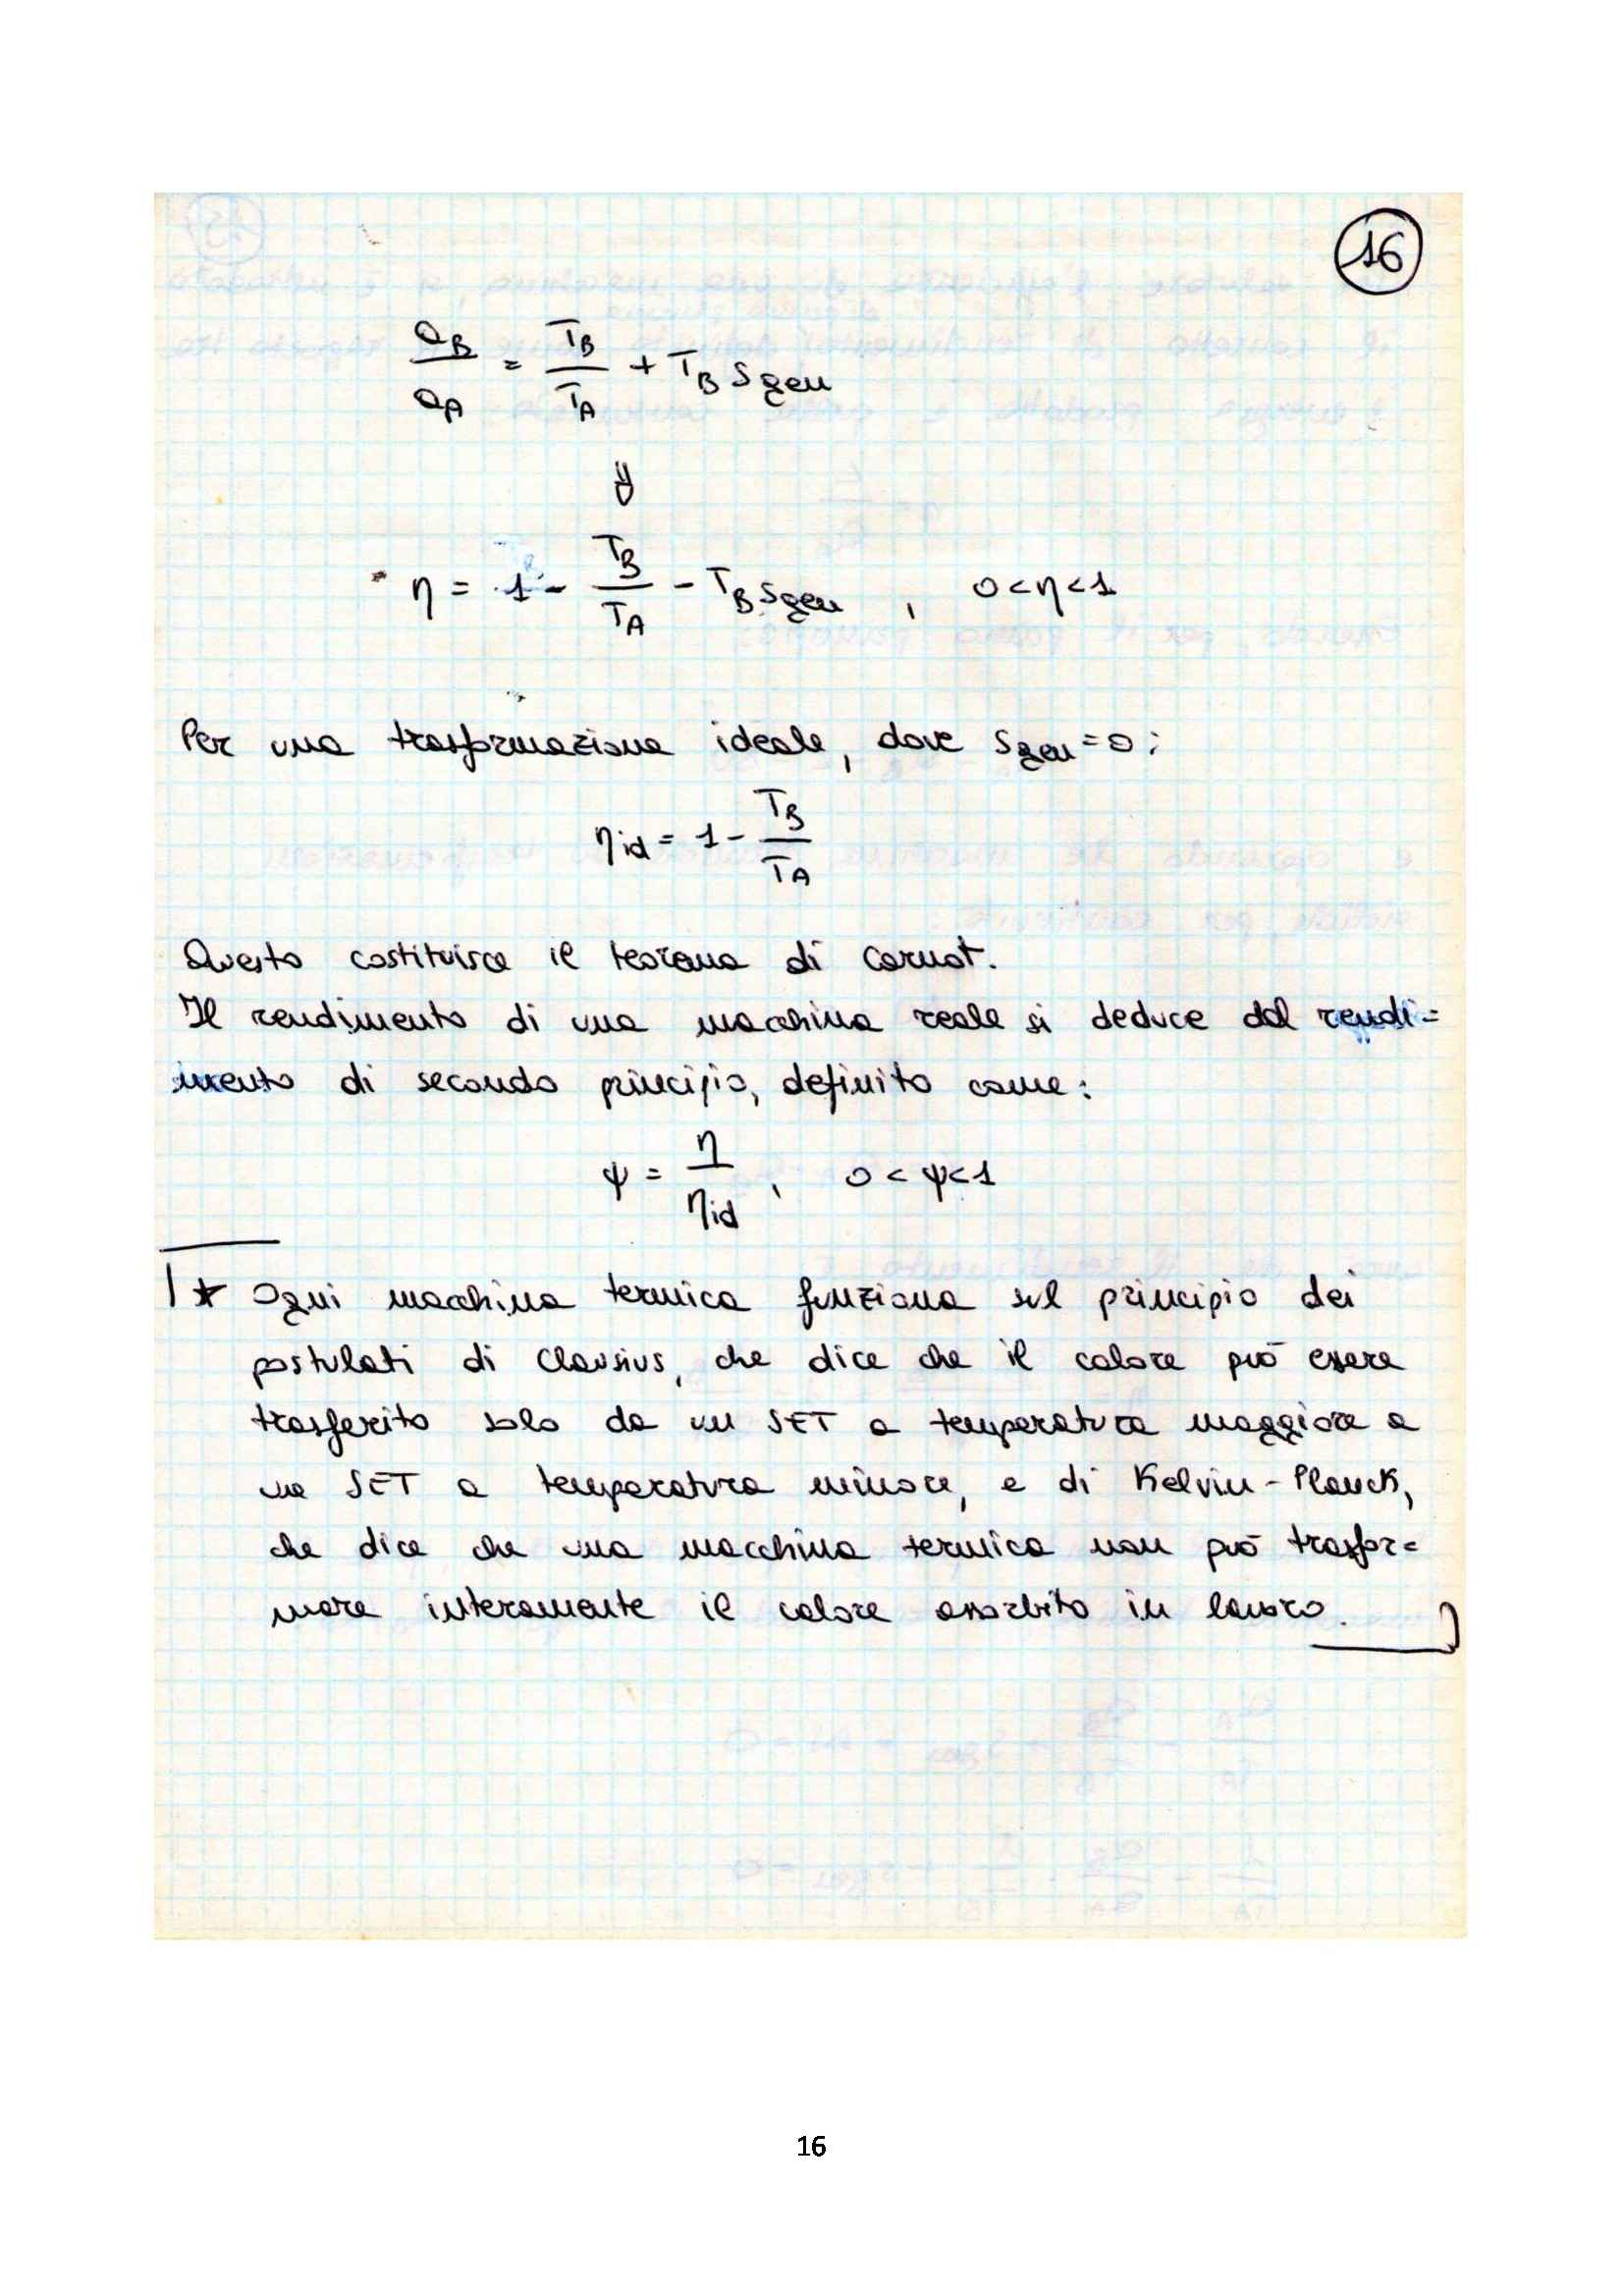 16
Q_B / Q_A = T_B / T_A + T_B s_gen
⇓
η = 1 - T_B / T_A - T_B s_gen , 0 < η < 1
Per una trasformazione ideale, dove s_gen = 0:
η_id = 1 - T_B / T_A
Questo costituisce il teorema di Carnot.
Il rendimento di una macchina reale si deduce dal rendi=
mento di secondo principio, definito come:
ψ = η / η_id , 0 < ψ < 1
* Ogni macchina termica funziona sul principio dei
postulati di Clausius, che dice che il calore può essere
trasferito solo da un SET a temperatura maggiore a
un SET a temperatura minore, e di Kelvin-Planck,
che dice che una macchina termica non può trasfor=
mare interamente il calore assorbito in lavoro.
16